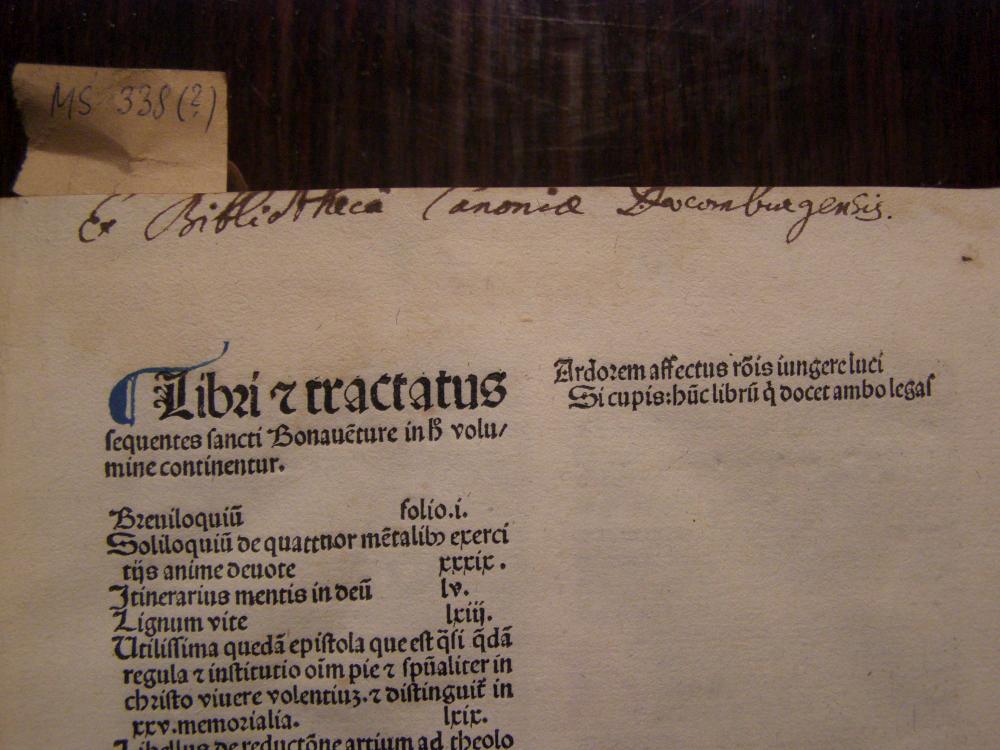 MS 338(?)
Ex Bibliothecâ Canoniæ
Libri ⁊ tractatus
sequentes sancti Bonauẽture in h̄ volu/
mine continentur.
Breuiloquiũ folio.i.
Soliloquiũ de quattuor mẽtalibꝰ exerci
tijs anime deuote xxxix.
Itinerarius mentis in deũ lv.
Lignum vite lxiij.
Utilissima quedã epistola que est q̃si q̃dã
regula ⁊ institutio oĩm pie ⁊ spũaliter in
christo viuere volentiuꝫ. ⁊ distinguit̃ in
xxv.memorialia. lxix.
Libellus de reductõne artium ad theolo
Ardorem affectus rõis iungere luci
Si cupis:hũc librũ q̇ docet ambo legas